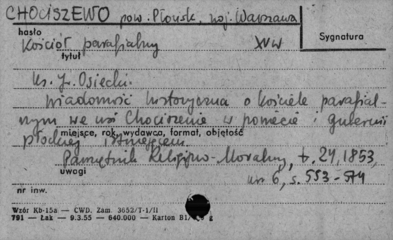 CHOCISZEWO pow. Płońsk, woj. Warszawa
hasło
Sygnatura
Kościół parafialny XV w
tytuł
Ks. J. Osiecki.
Wiadomość historyczna o kościele parafial-
nym we wsi Chociszewie w powiecie i gubernii
miejsce, rok, wydawca, format, objętość
płockiej istniejącem.
Pamiętnik Religijno-Moralny, t. 24, 1853,
uwagi
nr 6, s. 553-574
nr inw.
Wzór Kb-15a — CWD. Zam. 3652/T-1/II
791 — Łak — 9.3.55 — 640.000 — Karton B1/